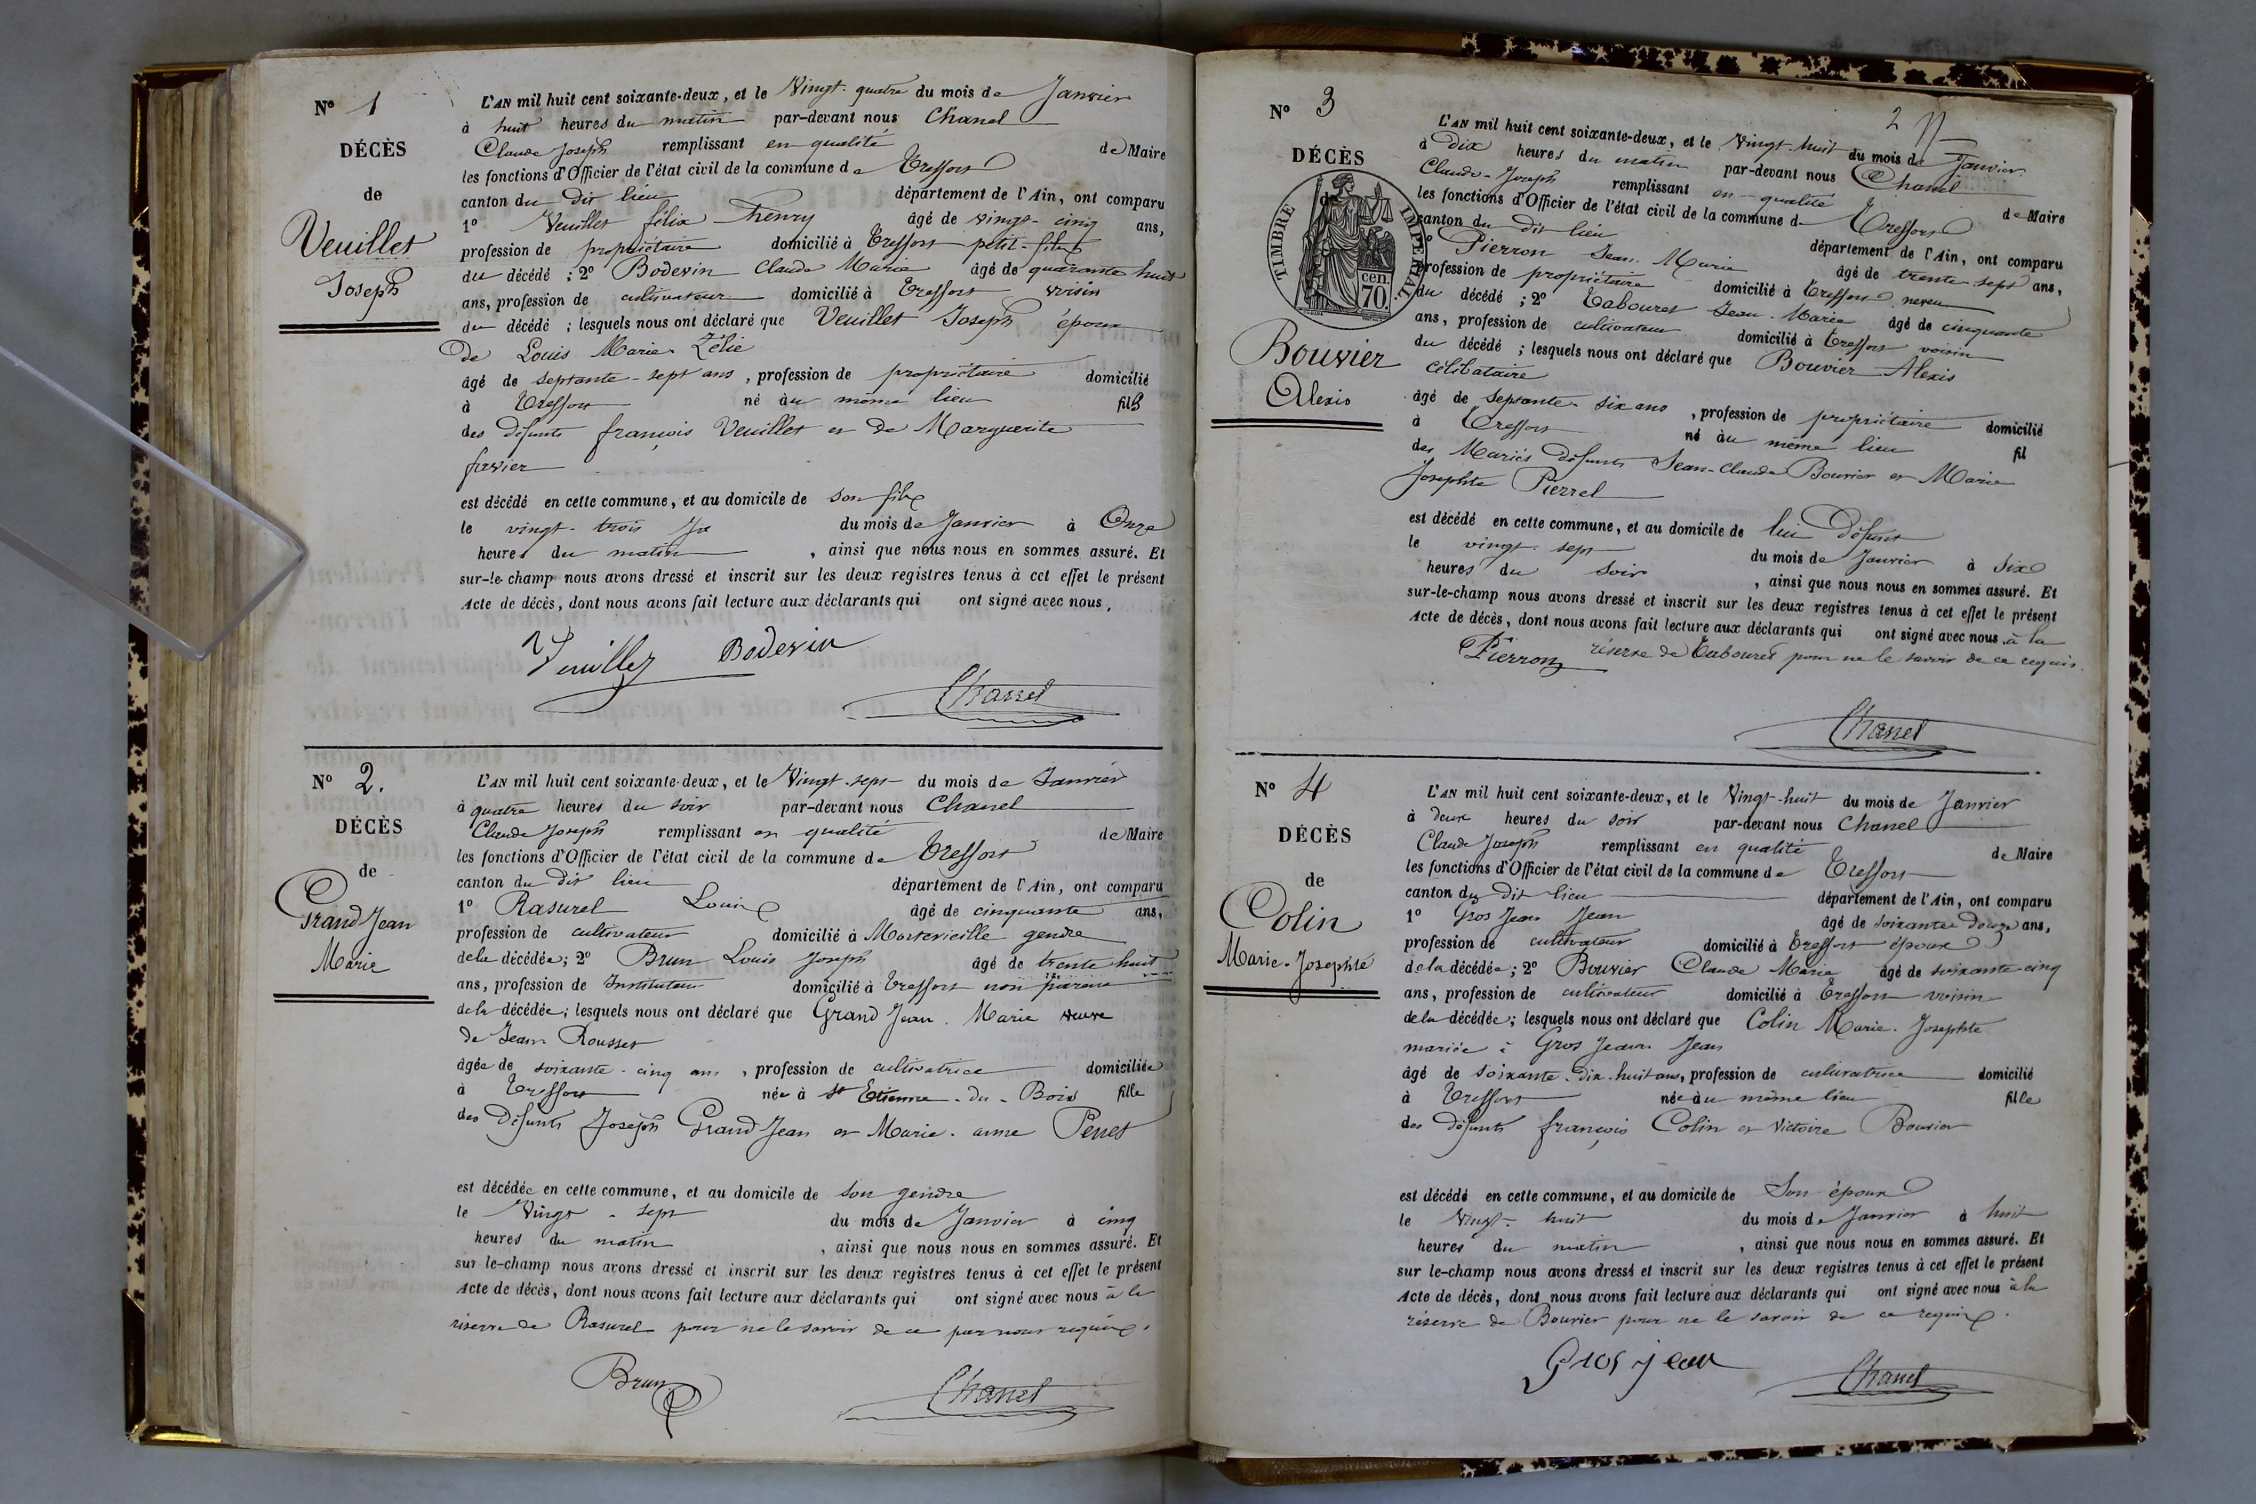 N° 1
DÉCÈS
de
Veuillet
Joseph
L'AN mil huit cent soixante-deux, et le Vingt-quatre du mois de Janvier
à huit heures du matin par-devant nous Chanel
Claude Joseph remplissant en qualité de Maire
les fonctions d'Officier de l'état civil de la commune de Treffort
canton du dit lieu département de l'Ain, ont comparu
1° Veuillet félix henry âgé de vingt-cinq ans,
profession de propriétaire domicilié à Treffort petit-fils
du décédé ; 2° Bodevin Claude Marie âgé de quarante huit
ans, profession de cultivateur domicilié à Treffort voisin
du décédé ; lesquels nous ont déclaré que Veuillet Joseph époux
de Louis Marie Zélie
âgé de septante-sept ans, profession de propriétaire domicilié
à Treffort né au même lieu fils
des défunts françois Veuillet et de Marguerite
favier
est décédé en cette commune, et au domicile de son fils
le vingt-trois du mois de Janvier à Onze
heures du matin, ainsi que nous nous en sommes assuré. Et
sur-le-champ nous avons dressé et inscrit sur les deux registres tenus à cet effet le présent
Acte de décès, dont nous avons fait lecture aux déclarants qui ont signé avec nous.
Veuillet Bodevin
Chanel
N° 2.
DÉCÈS
de
Grand Jean
Marie
L'AN mil huit cent soixante-deux, et le Vingt-sept du mois de Janvier
à quatre heures du soir par-devant nous Chanel
Claude Joseph remplissant en qualité de Maire
les fonctions d'Officier de l'état civil de la commune de Treffort
canton du dit lieu département de l'Ain, ont comparu
1° Rasurel Louis âgé de cinquante ans,
profession de cultivateur domicilié à Montevieille gendre
de la décédée; 2° Brun Louis Joseph âgé de trente huit
ans, profession de Instituteur domicilié à Treffort non parent
de la décédée; lesquels nous ont déclaré que Grand Jean Marie veuve
de Jean Rousset
âgée de soixante-cinq ans, profession de cultivatrice domiciliée
à Treffort née à St Etienne-du-Bois fille
des défunts Joseph Grand Jean et Marie-anne Penet
est décédée en cette commune, et au domicile de son gendre
le Vingt-sept du mois de Janvier à cinq
heures du matin, ainsi que nous nous en sommes assuré. Et
sur le-champ nous avons dressé et inscrit sur les deux registres tenus à cet effet le présent
Acte de décès, dont nous avons fait lecture aux déclarants qui ont signé avec nous à la
réserve de Rasurel pour ne le savoir de ce par nous requis.
Brun Chanel
2
N° 3
DÉCÈS
de
TIMBRE IMPÉRIAL
70 cen.
Bouvier
Alexis
L'AN mil huit cent soixante-deux, et le Vingt-huit du mois de Janvier
à dix heures du matin par-devant nous Chanel
Claude-Joseph remplissant en qualité de Maire
les fonctions d'Officier de l'état civil de la commune de Treffort
canton du dit lieu département de l'Ain, ont comparu
1° Pierron Jean Marie âgé de trente-sept ans,
profession de propriétaire domicilié à Treffort neveu
du décédé ; 2° Tabouret Jean-Marie âgé de cinquante
ans, profession de cultivateur domicilié à Treffort voisin
du décédé ; lesquels nous ont déclaré que Bouvier Alexis
célibataire
âgé de septante-six ans, profession de propriétaire domicilié
à Treffort né au même lieu fil
des Mariés défunts Jean-Claude Bouvier et Marie
Josephte Pierrel
est décédé en cette commune, et au domicile de lui défunt
le vingt-sept du mois de Janvier à six
heures du soir, ainsi que nous nous en sommes assuré. Et
sur-le-champ nous avons dressé et inscrit sur les deux registres tenus à cet effet le présent
Acte de décès, dont nous avons fait lecture aux déclarants qui ont signé avec nous à la
réserve de Tabouret pour ne le savoir de ce requis.
Pierron
Chanel
N° 4
DÉCÈS
de
Colin
Marie-Josephte
L'AN mil huit cent soixante-deux, et le Vingt-huit du mois de Janvier
à deux heures du soir par-devant nous Chanel
Claude Joseph remplissant en qualité de Maire
les fonctions d'Officier de l'état civil de la commune de Treffort
canton du dit lieu département de l'Ain, ont comparu
1° Gros Jean Jean âgé de soixante douze ans,
profession de cultivateur domicilié à Treffort époux
de la décédée; 2° Bouvier Claude Marie âgé de soixante-cinq
ans, profession de cultivateur domicilié à Treffort voisin
de la décédée; lesquels nous ont déclaré que Colin Marie-Josephte
mariée à Gros Jean Jean
âgé de soixante-dix-huit ans, profession de cultivatrice domicilié
à Treffort née au même lieu fille
des défunts françois Colin et Victoire Bouvier
est décédé en cette commune, et au domicile de Son époux
le Vingt-huit du mois de Janvier à huit
heures du matin, ainsi que nous nous en sommes assuré. Et
sur le-champ nous avons dressé et inscrit sur les deux registres tenus à cet effet le présent
Acte de décès, dont nous avons fait lecture aux déclarants qui ont signé avec nous à la
réserve de Bouvier pour ne le savoir de ce requis.
Gros jean Chanel